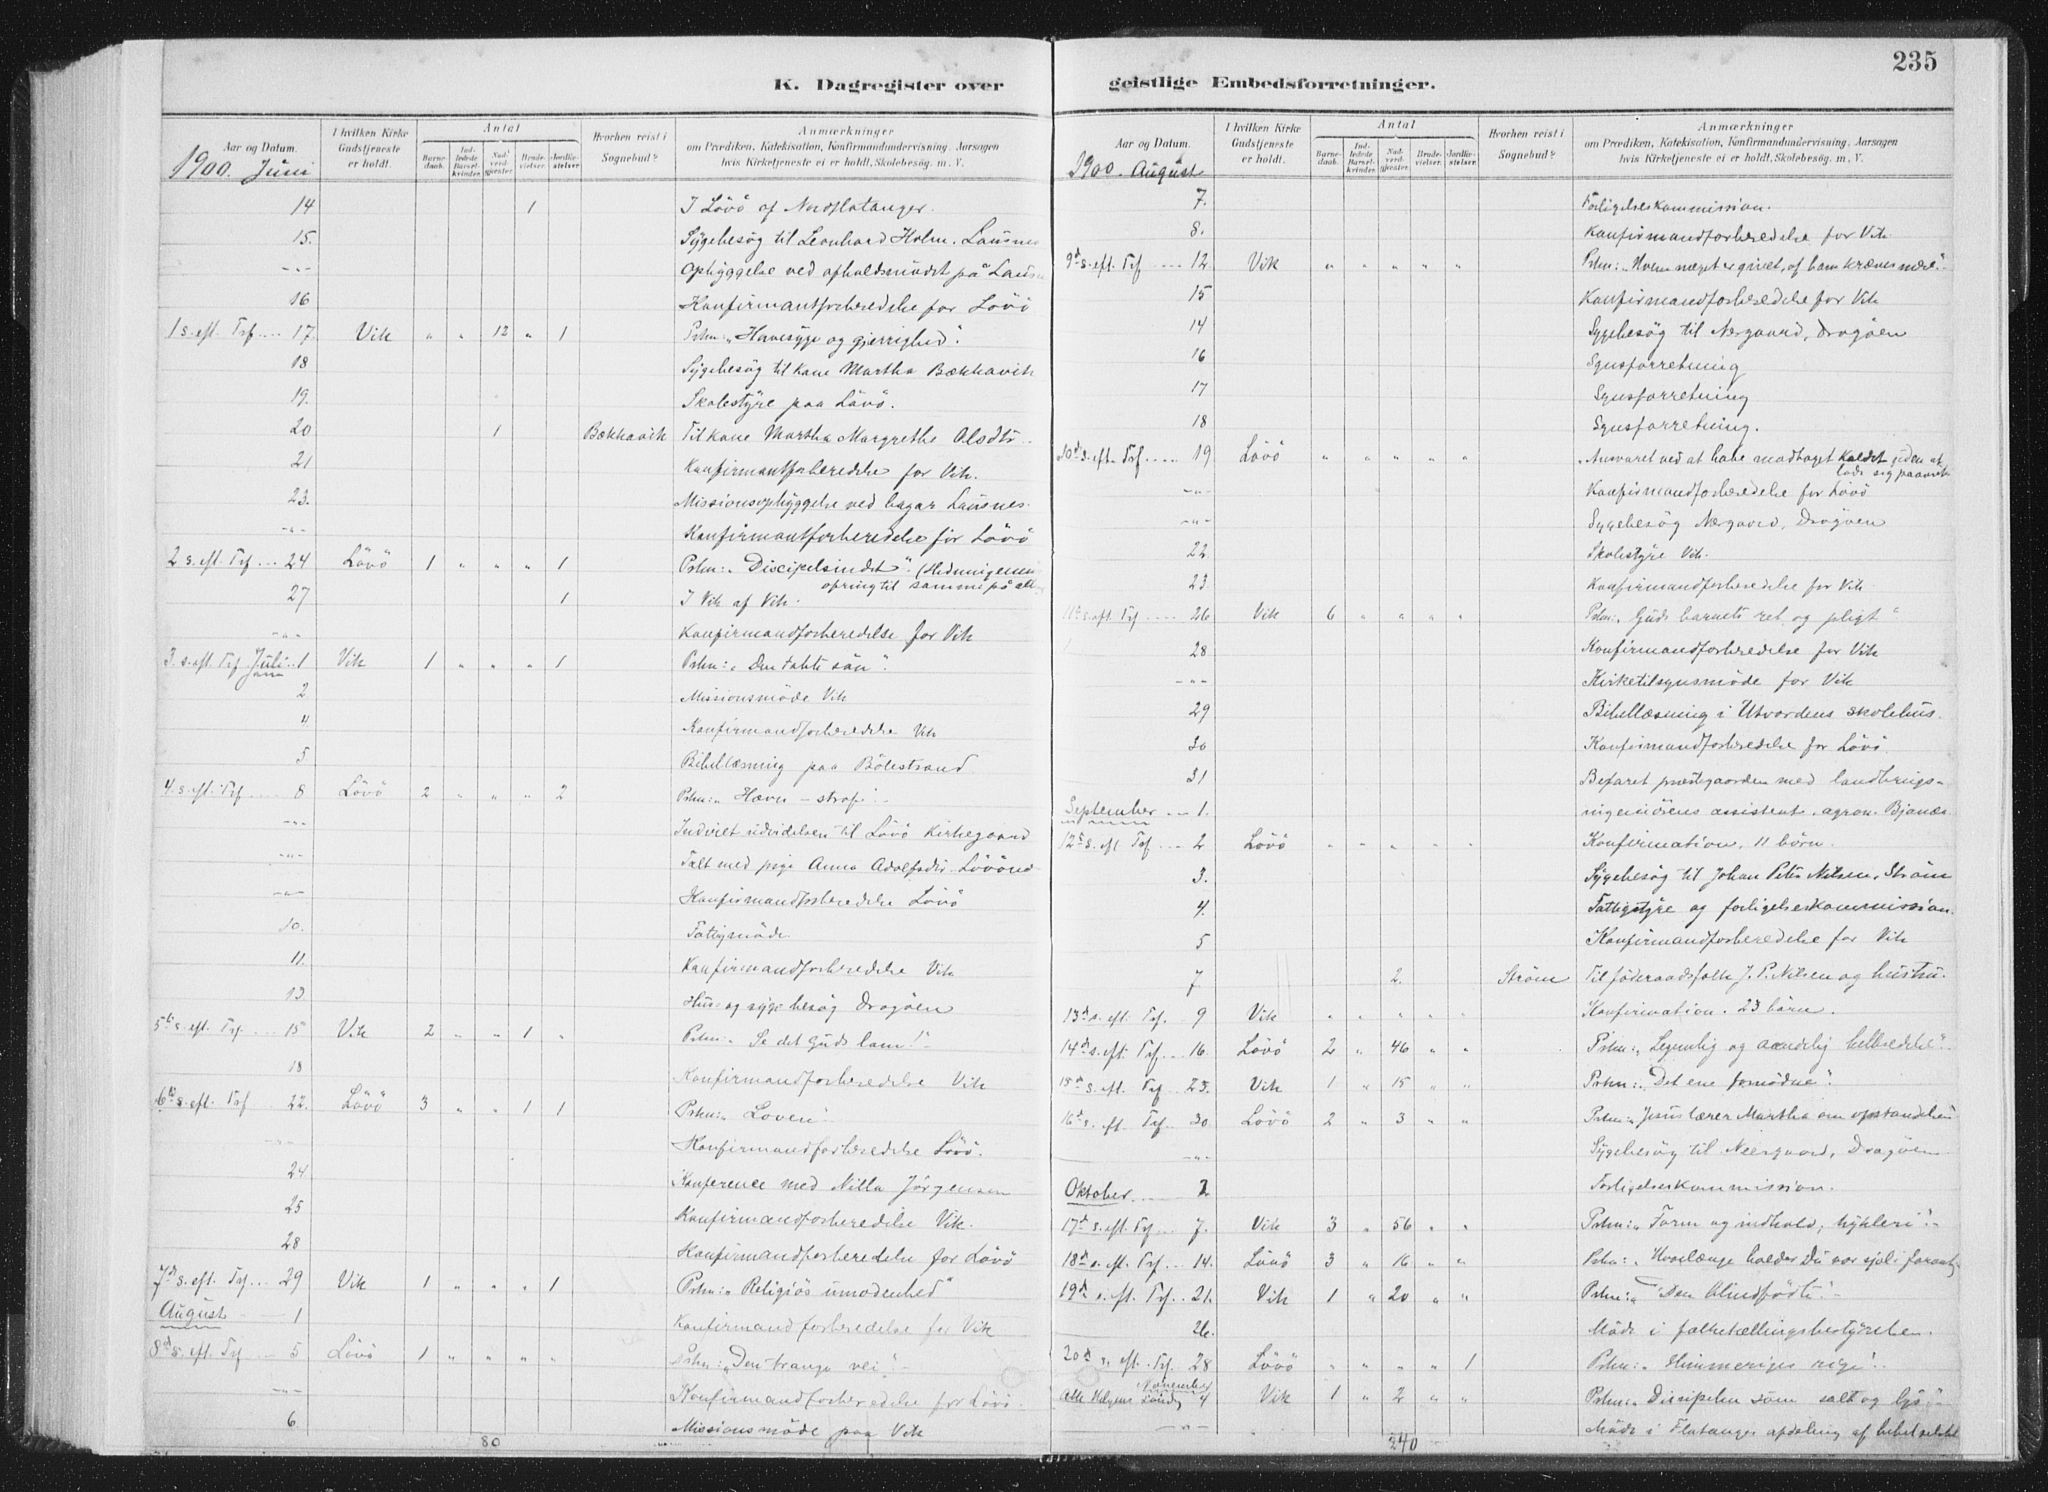 K. Dagregister over
Aar og Datum.
I hvilken Kirke Gudstjeneste er holdt.
Antal
Barnedaab.
Indledede Barselkvinder.
Nadverdgjester.
Brudevielser.
Jordfæstelser.
Hvorhen reist i Sognebud?
Anmærkninger
om Prædiken, Katekisation, Konfirmandundervisning, Aarsagen
hvis Kirketjeneste ei er holdt, Skolebesög. m. V.
1900. Juni
14 1 I Lövö af Nordflatanger.
15. Sygebesög til Leonhard Holm. Lausnes
-"- Opbyggelse ved afholdsmödet på Lausn
16 Konfirmantforberedelse for Lövö
1 s. eft. Trf .... 17. Vik " " 12 " 1 Prkn: „Havesyge og gjerrighed".
18 Sygebesög til kone Martha Bækkavik
19. Skolestyre paa Lövö.
20 1 Bækkavik Til kone Martha Margrethe Olsdtr.
21 Konfirmantforberedelse for Vik.
23. Missionsopbyggelse ved Lausnes.
-"- Konfirmantforberedelse for Lövö
2 s. eft. Trf ... 24 Lövö 1 " " " 1 Prkn: „Discipelsindet". (
sammes på
27 1 I Vik af Vik.
-"- Konfirmandforberedelse for Vik
3. s. eft. Trf. Juli .. 1 Vik 1 " " " 1 Prkn: „Den tabte sön".
2 Missionsmöde Vik
4 Konfirmandforberedelse Vik
5 Bibellæsning paa Bölestrand
4. s. eft. Trf. .... 8 Lövö 2 " " " 2 Prkn: „Hævn – straf".
-"- Indviet udvidelsen til Lövö Kirkegaard
-"- Talt med pige Anna Adolfsdtr
-"- Konfirmandforberedelse Lövö
10. Fattigmöde
11. Konfirmandforberedelse Vik
13 Hus- og sygebesög Dragöen
5te s. eft. Trf. ... 15 Vik 2 " " 1 " Prkn: „Se det Guds lam!"
18 Konfirmandforberedelse Vik
6te s. eft. Trf 22. Lövö 3 " " 1 1 Prkn: „Loven".
-"- Konfirmandforberedelse Lövö.
24 Konference med Nilla Jörgensen
25 Konfirmandforberedelse Vik.
28 Konfirmandforberedelse for Lövö
7d s. eft. Trf ... 29 Vik 1 " " " 1 Prkn: „Religiös umodenhed"
August 1 Konfirmandforberedelse for Vik
8d s. eft. Trf ... 5 Lövö 1 " " " " Prkn: „Den trange vei".
-"- Konfirmandforberedelse for Lövö.
6. Missionsmöde paa Vik
80
geistlige Embedsforretninger.
235
Aar og Datum.
I hvilken Kirke Gudstjeneste er holdt.
Antal
Barnedaab.
Indledede Barselkvinder.
Nadverdgjester.
Brudevielser.
Jordfæstelser.
Hvorhen reist i Sognebud?
Anmærkninger
om Prædiken, Katekisation, Konfirmandundervisning, Aarsagen
hvis Kirketjeneste ei er holdt, Skolebesög. m. V.
1900. August
7. Forligelseskommission.
8. Konfirmandforberedelse for Vik
9d s. eft. Trf .... 12 Vik " " " " " Prkn: „Hvem meget er givet, af ham kræves mere".
15 Konfirmandforberedelse for Vik
14 Sygebesög til Nergaard, Dragöen
16 Synsforretning
17 Synsforretning
18 Synsforretning.
10d s. eft. Trf .... 19 Lövö " " " " " „Ansvaret ved at have modtaget Kaldet uden at
lade sig paavirke
-"- Konfirmandforberedelse for Lövö
-"- Sygebesög Nergaard, Dragöen
22 Skolestyre Vik.
23 Konfirmandforberedelse for Vik
11te s. eft. Trf .... 26 Vik 6 " " " " Prkn: „Guds barnets ret og pligt"
28 Konfirmandforberedelse for Vik
-"- Kirketilsynsmöde for Vik
29 Bibellæsning i Utvordens skolehus.
30 Konfirmandforberedelse for Lövö.
31 Befaret præstegaarden med landbrugs-
September ... 1. ingeniörens assistent, agron. Bjanæs
12te s. eft. Trf ... 2 Lövö " " " " " Konfirmation. 11 börn.
3. Sygebesög til Johan Peter Nilsen, Ström
4. Fattigstyre og forligelseskommission.
5 Konfirmandforberedelse for Vik
7. 2. Ström Til föderaadsfolk J. P. Nilsen og hustru.
13d s. eft. Trf. 9 Vik " " " " " Konfirmation. 23 börn.
14d s. eft. Trf ... 16 Lövö 2 " 46 " " Prkn: „Legemlig og aandelig helbredelse".
15d s. eft. Trf ... 23. Vik 1 " 15 " " Prkn: „Det ene fornödne".
16d s. eft Trf. 30 Lövö 2 " 3 " " Prkn: „Jesus lærer Martha om opstandelsen
-"- Sygebesög til Neergaard, Dragöen
Oktober 2. Forligelseskommission.
17d s. eft. Trf ... 7. Vik 3 " 56 " " Prkn: „Form og indhold; hykleri".
18d s. eft. Trf ... 14. Lövö 3 " 16 " " Prkn: „Hvorlænge holder Du vor sjæl i
19d s. eft. Trf .. 21. Vik 1 " 20 " " Prkn: „Den blindfödte".
26. Möde i folketællingsbestyrelsen.
20d s. eft. Trf. 28 Lövö " " " " 1 Prkn: „Himmeriges rige".
Alle Helgens Söndag November 4 Vik 1 " 2 " " Prkn: „Disciplen som salt og lys".
-"- Möde i Flatangers afdeling af bibelselskabet
240